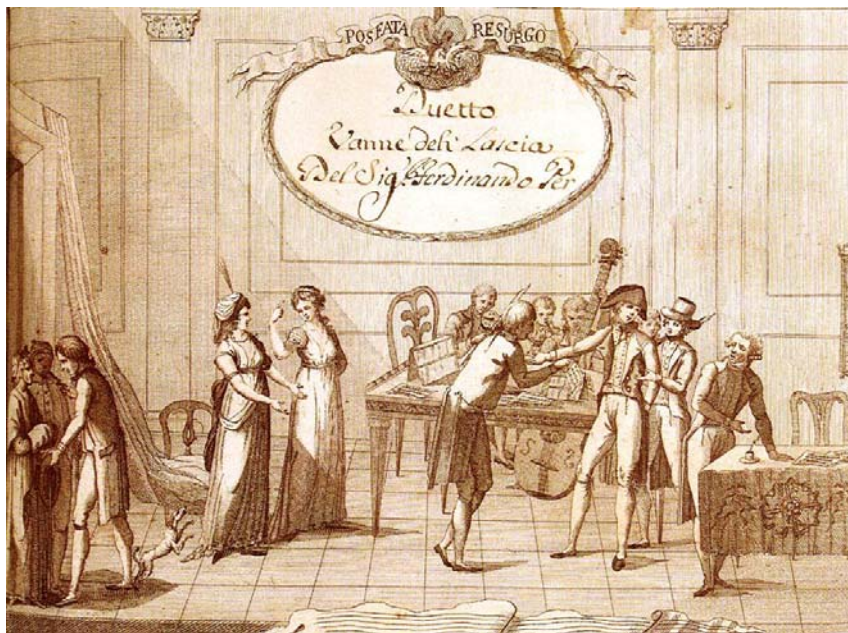 POST FATA RESURGO
Duetto
Vanne deh' Lascia
Del Sig.r Ferdinando Per